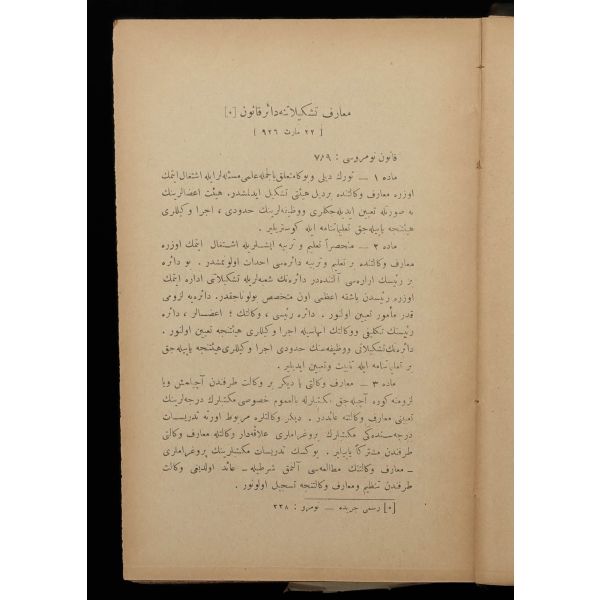 معارف تشكيلاتنه دائر قانون [٠]
[ ٢٢ مارت ٩٢٦ ]
قانون نومروسى : ٧٨٩
ماده ١ ــ تورك ديلى وبوكا متعلق بالجمله علمى مسئله لر ايله اشتغال ايتمك
اوزره معارف وكالتنده بر ديل هيئتى تشكيل ايدلمشدر. هيئت اعضالرينك
نه صورتله تعيين ايديله جكلرى ووظيفه لرينك حدودى ، اجرا وكيللرى
هيئتنجه ياپيله جق تعليماتنامه ايله كوستريلير .
ماده ٢ ــ منحصراً تعليم و تربيه ايشلريله اشتغال ايتمك اوزره
معارف وكالتنده بر تعليم و تربيه دائره سى احداث اولونمشدر. بو دائره
بر رئيسك اداره سى آلتنده در دائره نك شعبه لريله تشكيلاتى اداره ايتمك
اوزره رئيسدن باشقه اعظمى اون متخصص بولوناجقدر. دائره يه لزومى
قدر مأمور تعيين اولنور . دائره رئيسى ، وكالتك ؛ اعضالر ، دائره
رئيسنك تكليفى ووكالتك انهاسيله اجرا وكيللرى هيئتنجه تعيين اولنور .
دائره نك تشكيلاتى ووظيفه سنك حدودى اجرا وكيللرى هيئتنجه ياپيله جق
بر تعليماتنامه ايله تثبيت وتعيين ايديلير .
ماده ٣ ــ معارف وكالتى يا ديكر بر وكالت طرفندن آچيلمش ويا
لزومنه كوره آچيله جق مكتبلرله بالعموم خصوصى مكتبلرك درجه لرينك
تعيينى معارف وكالتنه عائددر . ديكر وكالتلره مربوط اورته تدريسات
درجه سنده كى مكتبلرك پروغراملرى علاقه دار وكالتله معارف وكالتى
طرفندن مشتركاً ياپيلير . يوكسك تدريسات مكتبلرينك پروغراملرى
ــ معارف وكالتنك مطالعه سى آلنمق شرطيله ــ عائد اولدينى وكالت
طرفندن تنظيم ومعارف وكالتنجه تسجيل اولونور .
[٠] رسمى جريده ــ نومرو : ٣٣٨